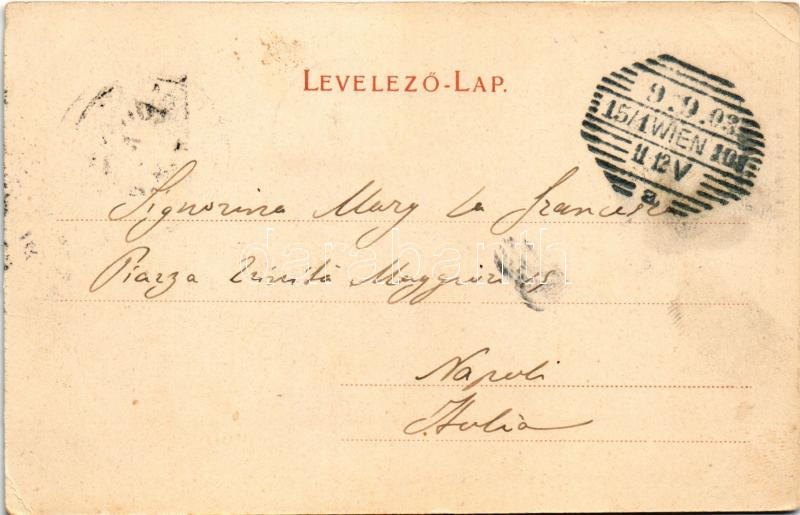 LEVELEZŐ-LAP.
9.9.03
15/1 WIEN 101
11-12V
a
Signorina Mary La Francesca
Piazza Trinità Maggiore
Napoli
Italia
darabanth